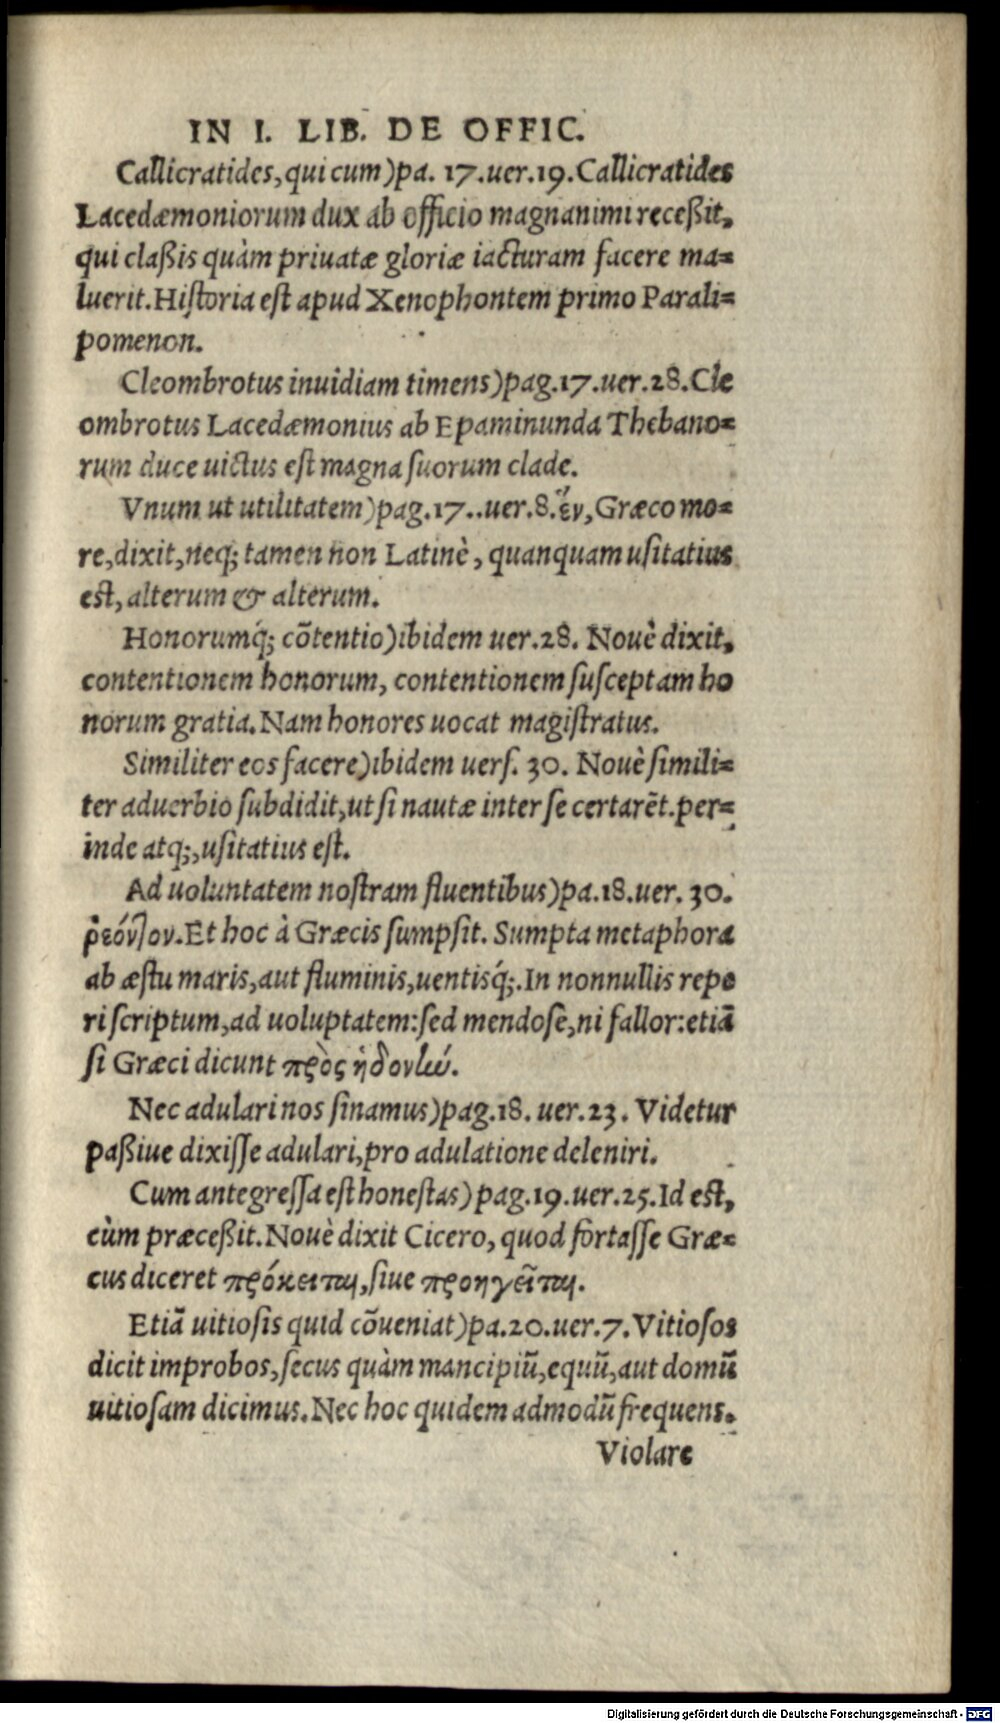 IN I. LIB. DE OFFIC.
Callicratides, qui cum) pa. 17. uer. 19. Callicratides
Lacedæmoniorum dux ab officio magnanimi receßit,
qui claßis quàm priuatæ gloriæ iacturam facere ma=
luerit. Hiſtoria eſt apud Xenophontem primo Parali=
pomenon.
Cleombrotus inuidiam timens) pag. 17. uer. 28. Cle
ombrotus Lacedæmonius ab Epaminunda Thebano=
rum duce uictus eſt magna ſuorum clade.
Vnum ut utilitatem) pag. 17.. uer. 8. ἓν, Græco mo=
re, dixit, neq; tamen non Latinè, quanquam uſitatius
eſt, alterum & alterum.
Honorumq́; cõtentio) ibidem uer. 28. Nouè dixit,
contentionem honorum, contentionem ſuſceptam ho
norum gratia. Nam honores uocat magiſtratus.
Similiter eos facere) ibidem uerſ. 30. Nouè ſimili=
ter aduerbio ſubdidit, ut ſi nautæ inter ſe certarẽt. per=
inde atq;, uſitatius eſt.
Ad uoluntatem noſtram fluentibus) pa. 18. uer. 30.
ῥεόντον. Et hoc à Græcis ſumpſit. Sumpta metaphora
ab æſtu maris, aut fluminis, uentisq́;. In nonnullis repe
ri ſcriptum, ad uoluptatem: ſed mendoſe, ni fallor: etiã
ſi Græci dicunt πρὸς ἡδονὼ́.
Nec adulari nos ſinamus) pag. 18. uer. 23. Videtur
paßiue dixiſſe adulari, pro adulatione deleniri.
Cum antegreſſa eſt honeſtas) pag. 19. uer. 25. Id eſt,
cùm præceßit. Nouè dixit Cicero, quod fortaſſe Græ=
cus diceret πρόκειται, ſiue προηγεῖται.
Etiã uitioſis quid cõueniat) pa. 20. uer. 7. Vitioſos
dicit improbos, ſecus quàm mancipiũ, equũ, aut domũ
uitioſam dicimus. Nec hoc quidem admodũ frequens.
Violare
Digitalisierung gefördert durch die Deutsche Forschungsgemeinschaft - DFG